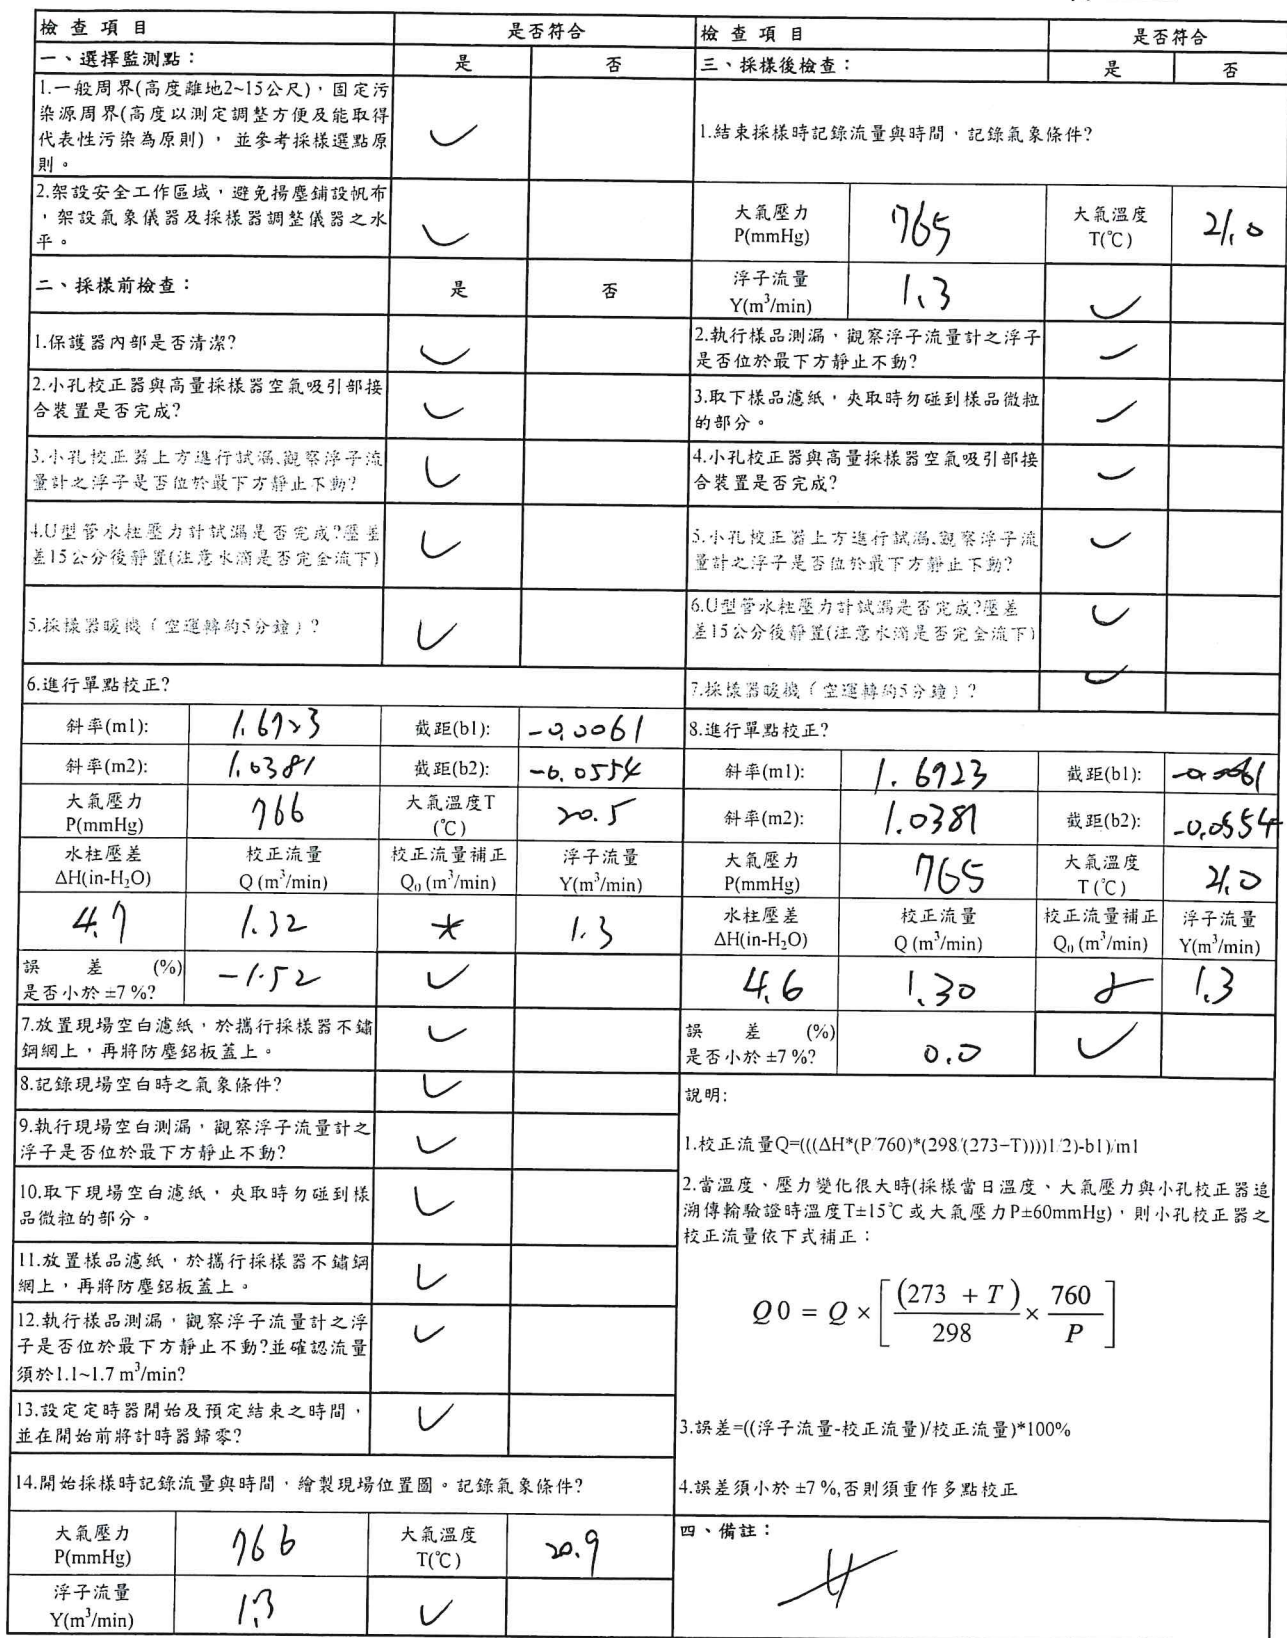 檢 查 項 目 是否符合
一、選擇監測點： 是 否
1.一般周界(高度離地2~15公尺)，固定污
染源周界(高度以測定調整方便及能取得
代表性污染為原則)， 並參考採樣選點原
則。
2.架設安全工作區域，避免揚塵鋪設帆布
，架設氣象儀器及採樣器調整儀器之水
平。
二、採樣前檢查： 是 否
1.保護器內部是否清潔?
2.小孔校正器與高量採樣器空氣吸引部接
合裝置是否完成?
3.小孔校正器上方進行試漏,觀察浮子流
量計之浮子是否位於最下方靜止不動?
4.U型管水柱壓力計試漏是否完成?壓差
差15公分後靜置(注意水滴是否完全流下)
5.採樣器暖機（空運轉約5分鐘）?
6.進行單點校正?
斜率(m1): 1.6923 截距(b1): -0.0061
斜率(m2): 1.0381 截距(b2): -0.0554
大氣壓力 大氣溫度T
P(mmHg) 766 (℃) 20.5
水柱壓差 校正流量 校正流量補正 浮子流量
ΔH(in-H₂O) Q (m³/min) Q₀ (m³/min) Y(m³/min)
4.7 1.32 1.3
誤 差 (%)
是否小於 ±7 %? -1.52
7.放置現場空白濾紙，於攜行採樣器不鏽
鋼網上，再將防塵鋁板蓋上。
8.記錄現場空白時之氣象條件?
9.執行現場空白測漏，觀察浮子流量計之
浮子是否位於最下方靜止不動?
10.取下現場空白濾紙，夾取時勿碰到樣
品微粒的部分。
11.放置樣品濾紙，於攜行採樣器不鏽鋼
網上，再將防塵鋁板蓋上。
12.執行樣品測漏，觀察浮子流量計之浮
子是否位於最下方靜止不動?並確認流量
須於1.1~1.7 m³/min?
13.設定定時器開始及預定結束之時間，
並在開始前將計時器歸零?
14.開始採樣時記錄流量與時間，繪製現場位置圖。記錄氣象條件?
大氣壓力 大氣溫度
P(mmHg) 766 T(℃) 20.9
浮子流量
Y(m³/min) 1.3
檢 查 項 目 是否符合
三、採樣後檢查： 是 否
1.結束採樣時記錄流量與時間，記錄氣象條件?
大氣壓力 大氣溫度
P(mmHg) 765 T(℃) 21.0
浮子流量
Y(m³/min) 1.3
2.執行樣品測漏，觀察浮子流量計之浮子
是否位於最下方靜止不動?
3.取下樣品濾紙，夾取時勿碰到樣品微粒
的部分。
4.小孔校正器與高量採樣器空氣吸引部接
合裝置是否完成?
5.小孔校正器上方進行試漏,觀察浮子流
量計之浮子是否位於最下方靜止下動?
6.U型管水柱壓力計試漏是否完成?壓差
差15公分後靜置(注意水滴是否完全流下)
7.採樣器暖機（空運轉約5分鐘）?
8.進行單點校正?
斜率(m1): 1.6923 截距(b1): -0.0061
斜率(m2): 1.0381 截距(b2): -0.0554
大氣壓力 大氣溫度
P(mmHg) 765 T (℃) 21.0
水柱壓差 校正流量 校正流量補正 浮子流量
ΔH(in-H₂O) Q (m³/min) Q₀ (m³/min) Y(m³/min)
4.6 1.30 1.3
誤 差 (%)
是否小於 ±7 %? 0.0
說明:
1.校正流量Q=(((ΔH*(P/760)*(298/(273+T))))1/2)-b1)/m1
2.當溫度、壓力變化很大時(採樣當日溫度、大氣壓力與小孔校正器追
溯傳輸驗證時溫度T±15℃ 或大氣壓力P±60mmHg)，則小孔校正器之
校正流量依下式補正：
Q 0 = Q × [ (273 + T ) / 298 × 760 / P ]
3.誤差=((浮子流量-校正流量)/校正流量)*100%
4.誤差須小於 ±7 %,否則須重作多點校正
四、備註：